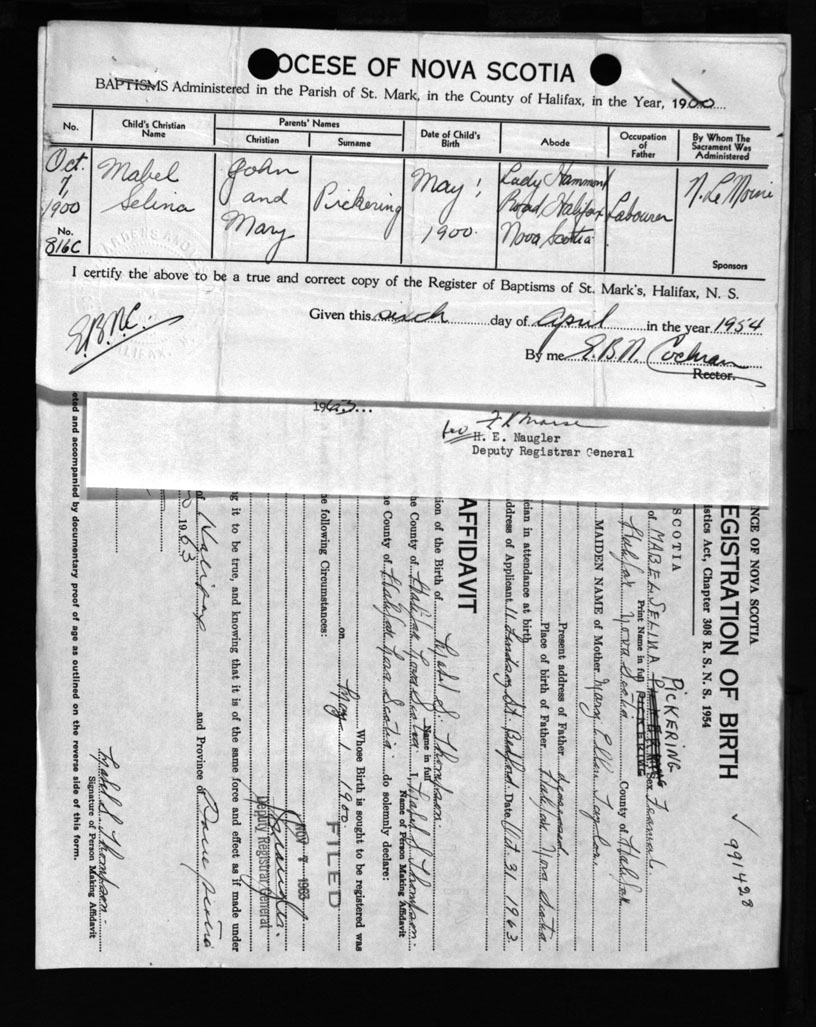 OCESE OF NOVA SCOTIA
BAPTISMS Administered in the Parish of St. Mark, in the County of Halifax, in the Year, 1900
No.
Child's Christian Name
Parents' Names
Christian
Surname
Date of Child's Birth
Abode
Occupation of Father
By Whom The Sacrament Was Administered
Oct. 7, 1900
No. 816C
Mabel Selina
John and Mary
Pickering
May 1, 1900.
Lady Hammond Road, Halifax Nova Scotia
Labourer
Sponsors
I certify the above to be a true and correct copy of the Register of Baptisms of St. Mark's, Halifax, N. S.
Given this sixth day of April in the year 1954
E.B.N.C.
By me E.B.N. Cochran
Rector.
1963
H. E. Naugler
Deputy Registrar General
NCE OF NOVA SCOTIA
EGISTRATION OF BIRTH
✓ 991428
istics Act, Chapter 308 R. S. N. S. 1954
SCOTIA
PICKERING
of MABEL SELINA Sex Female
Print Name in full
Halifax Nova Scotia County of Halifax
MAIDEN NAME of Mother Mary Ellen Taylor
Present address of Father deceased
Place of birth of Father Halifax Nova Scotia
cian in attendance at birth
ddress of Applicant 11 St. Bedford Date Oct 31 1963
AFFIDAVIT
tion of the Birth of Mabel S. Thompson.
Name in full
he County of Halifax Nova Scotia I, Mabel S Thompson.
Name of Person Making Affidavit
he County of Halifax Nova Scotia do solemnly declare:
Whose Birth is sought to be registered was
on May 1 1900.
FILED
e following Circumstances:
NOV 7 1963
Deputy Registrar General
g it to be true, and knowing that it is of the same force and effect as if made under
of Halifax and Province of Nova Scotia
1963
Mabel S. Thompson.
Signature of Person Making Affidavit
eted and accompanied by documentary proof of age as outlined on the reverse side of this form.